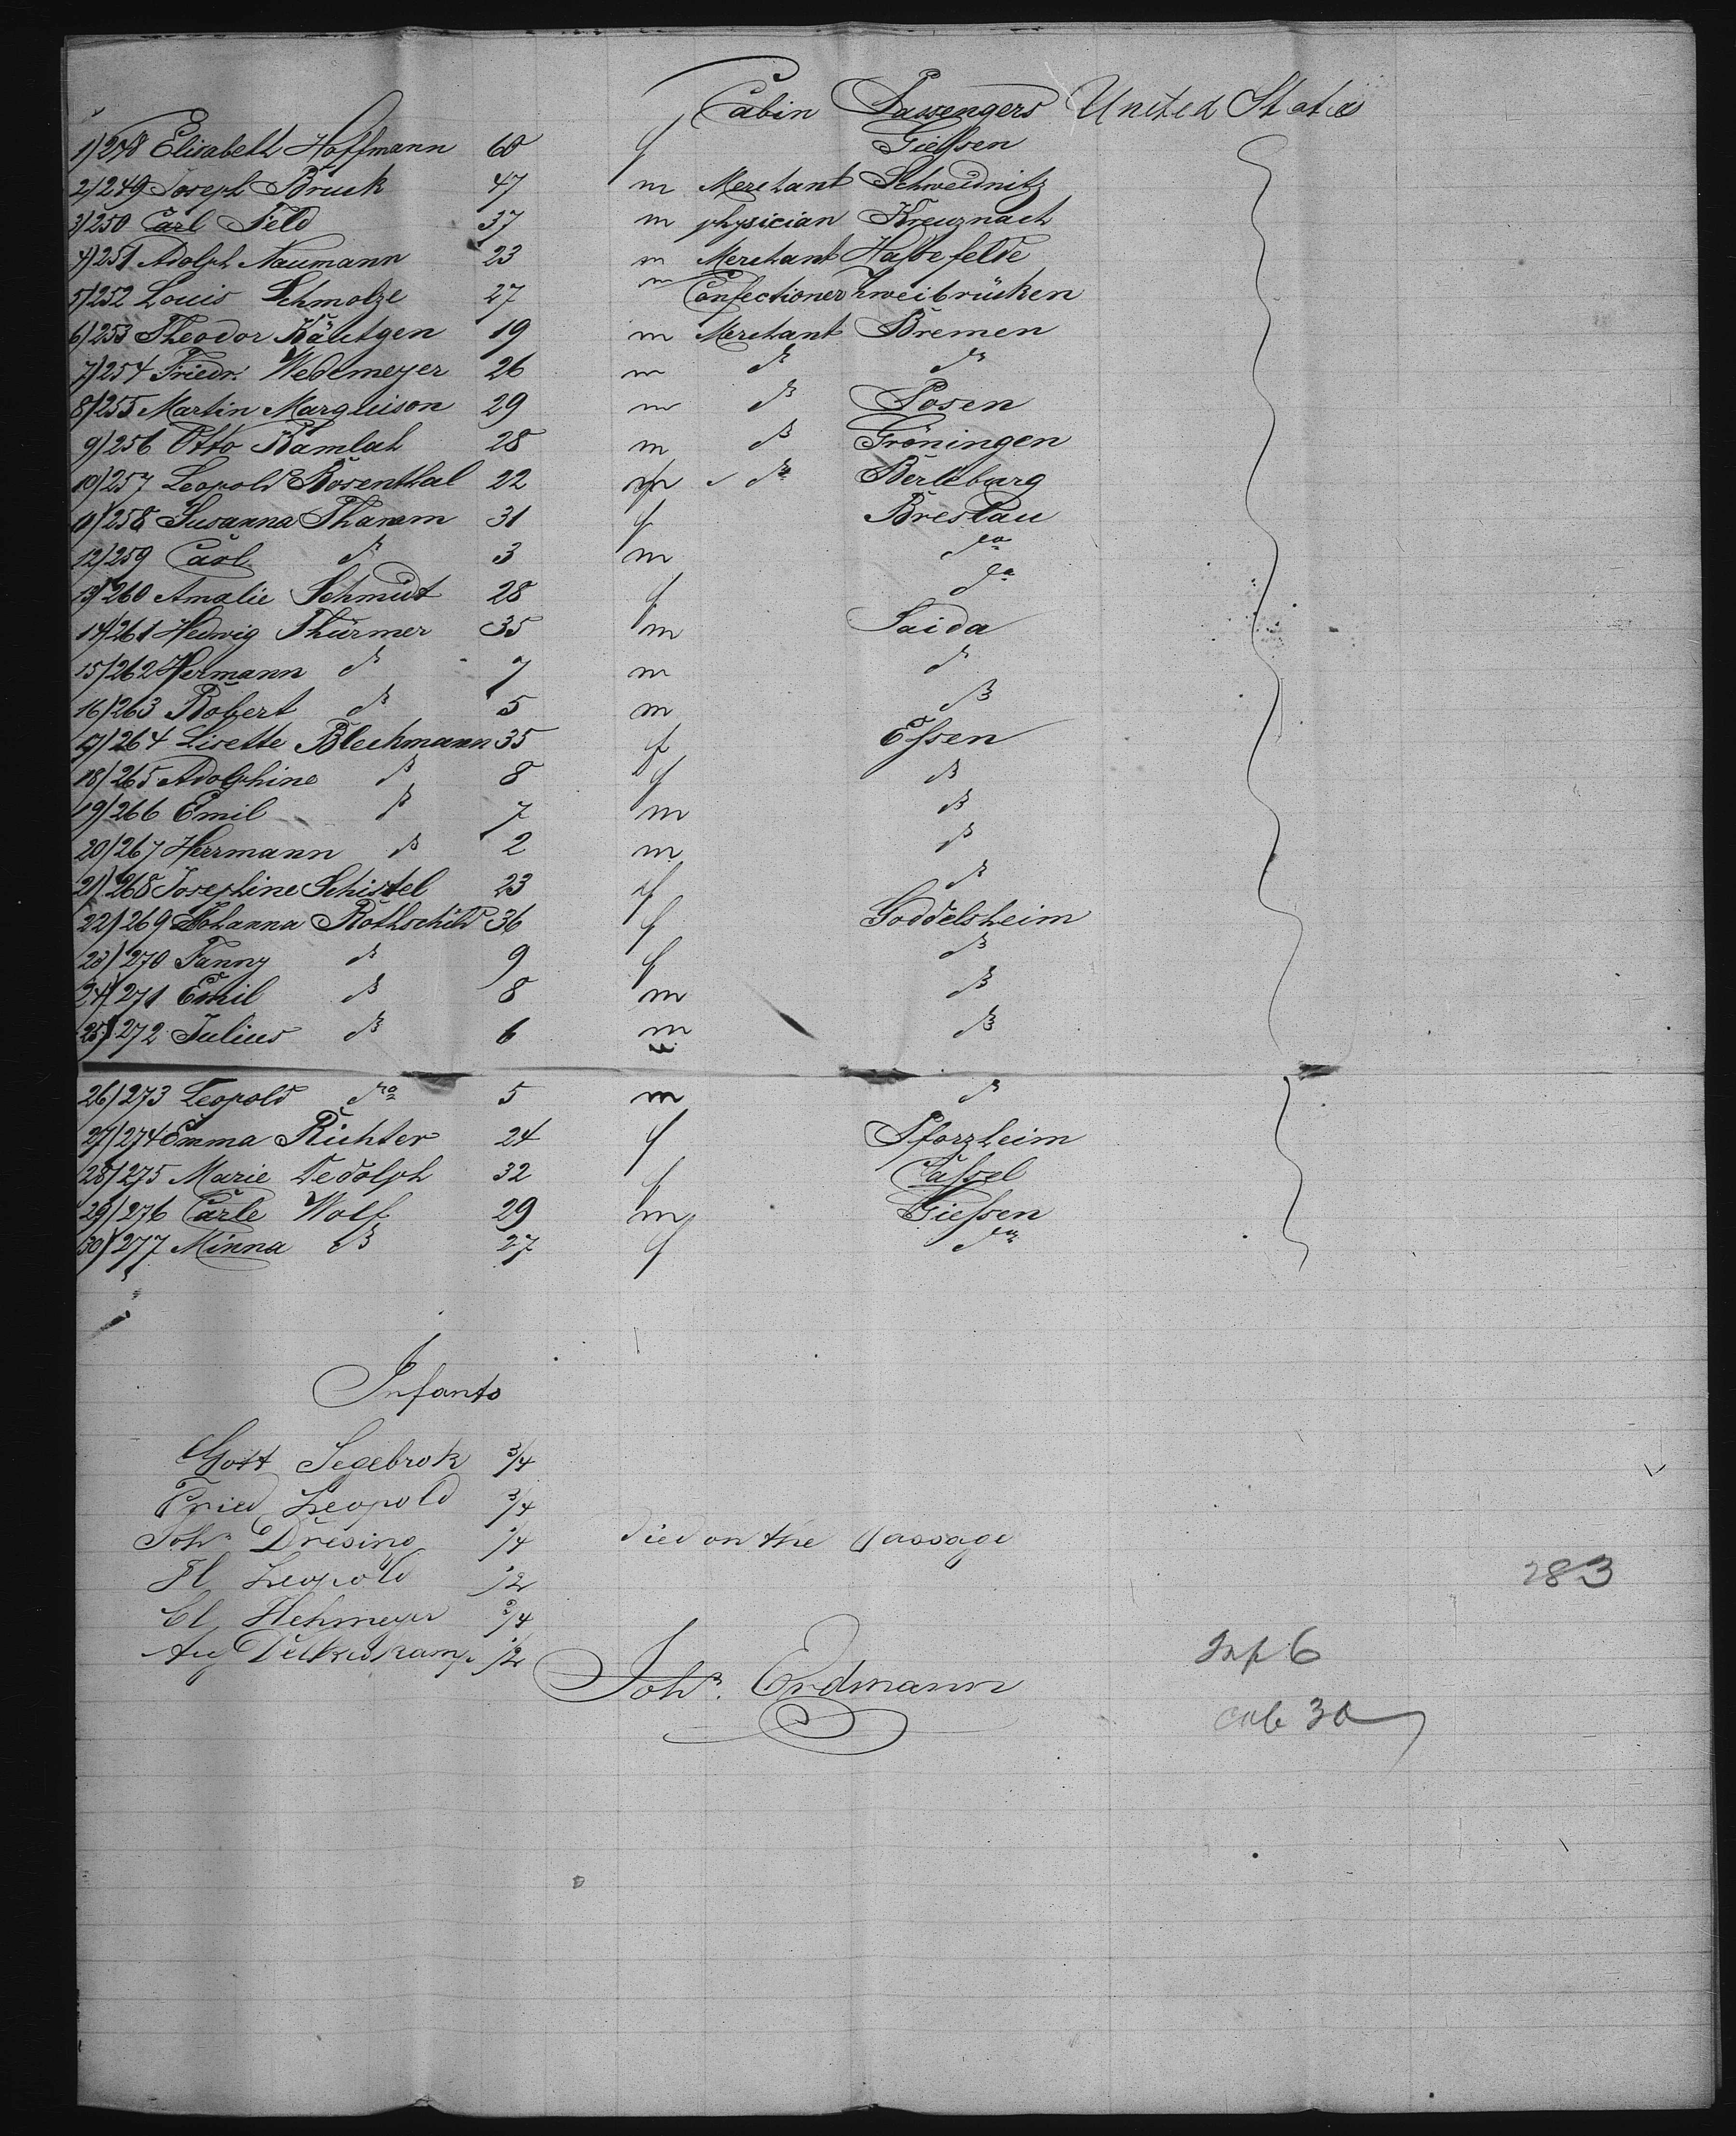 Cabin Passengers United States
1) 248 Elisabeth Hoffmann 60 f Gießen
2) 249 Joseph Bruck 47 m Merchant Schweidnitz
3) 250 Carl Feld 37 m physician Kreuznach
4) 251 Adolph Naumann 23 m Merchant Haßefelde
5) 252 Louis Schmolze 27 m Confectioner Zweibrücken
6) 253 Theodor Käutgen 19 m Merchant Bremen
7) 254 Friedr. Wedemeyer 26 m do do
8) 255 Martin Marguison 29 m do Posen
9) 256 Otto Kamlah 28 m do Gröningen
10) 257 Leopold Rosenthal 22 m do Berleburg
11) 258 Susanna Thamm 31 f Breslau
12) 259 Carl do 3 m do
13) 260 Amalie Schmidt 28 f do
14) 261 Hedwig Thürmer 35 m Saida
15) 262 Hermann do 7 m do
16) 263 Robert do 5 m do
17) 264 Lisette Blechmann 35 f Eßen
18) 265 Adolphine do 8 f do
19) 266 Emil do 7 m do
20) 267 Herrmann do 2 m do
21) 268 Josephine Schistel 23 f do
22) 269 Johanna Rothschild 36 f Goddelsheim
23) 270 Fanny do 9 f do
24) 271 Emil do 8 m do
25) 272 Julius do 6 m do
26) 273 Leopold do 5 m do
27) 274 Emma Richter 24 f Pforzheim
28) 275 Marie Tedolph 32 f Caßel
29) 276 Carle Wolf 29 m Gießen
30) 277 Minna do 27 f do
Infants
Gott Segebrok 3/4
Fried Leopold 3/4
Johs Dresing 1/4 died on the passage
Fl Leopold 1/2
283
Cl Hehmeyer 3/4
Aug 1/2
Inf 6
Johs. Erdmann
cab 30